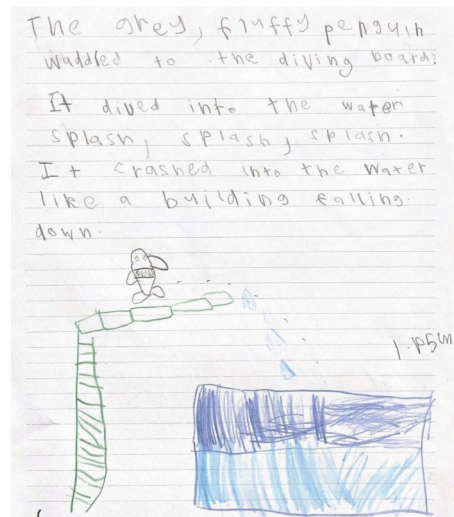 The grey, fluffy penguin
waddled to the diving board.
It dived into the water
splash, splash, splash.
It crashed into the water
like a building falling.
down.